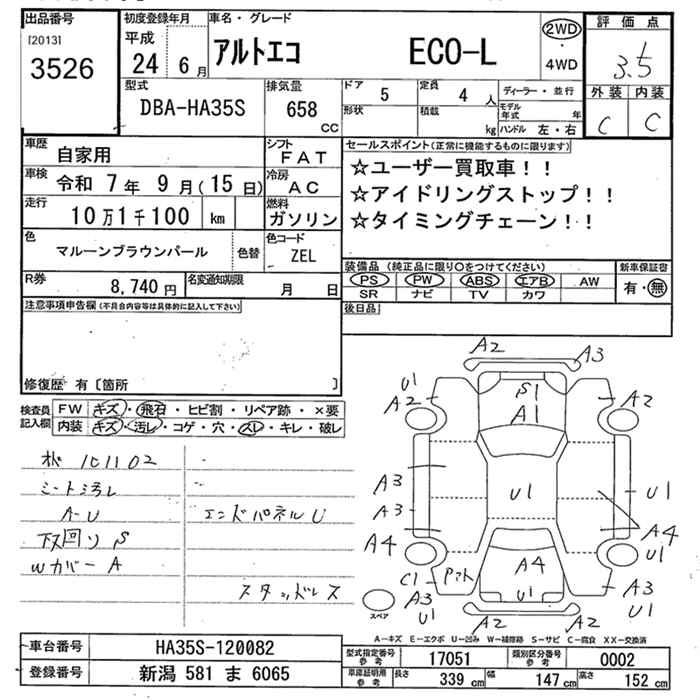 出品番号
[2013]
3526
初度登録年月
平成
24 6月
車名・グレード
アルトエコ ECO-L
2WD
・
4WD
評価点
3.5
外装 内装
C C
型式
DBA-HA35S
排気量
658 cc
ドア
5
定員
4人
形状
積載
kg
ディーラー・並行
モデル年式 年
ハンドル 左・右
車歴
自家用
シフト
FAT
車検
令和 7年 9月(15日)
冷房
AC
走行
10万1千100 km
燃料
ガソリン
色
マルーンブラウンパール
色替
色コード
ZEL
R券
8,740円
名変通知期限
月 日
セールスポイント(正常に機能するものに限ります)
☆ユーザー買取車!!
☆アイドリングストップ!!
☆タイミングチェーン!!
装備品 (純正品に限り○をつけてください)
PS PW ABS エアB AW
SR ナビ TV カワ
新車保証書
有・無
後日品
注意事項申告欄(不具合内容等は具体的に記入して下さい)
修復歴 有〔箇所 〕
検査員
記入欄
FW キズ・飛石・ヒビ割・リペア跡・×要
内装 キズ・汚レ・コゲ・穴・スレ・キレ・破レ
シート汚レ
A-U エンドパネルU
下回りS
Wカバー A
スタッドレス
A2 A3
U1
A2 S1 A2
A1
A3 U1 U1
A3
A4 A4
A4 U1
C1 アト A3
A3 U1 U1
U1
A2 A2
スペア
A-キズ E-エクボ U-凹み W-補修跡 S-サビ C-腐食 XX-交換済
車台番号 HA35S-120082
登録番号 新潟 581 ま 6065
型式指定番号 参考 17051 類別区分番号 参考 0002
車庫証明用 参考 長さ 339cm 幅 147cm 高さ 152cm